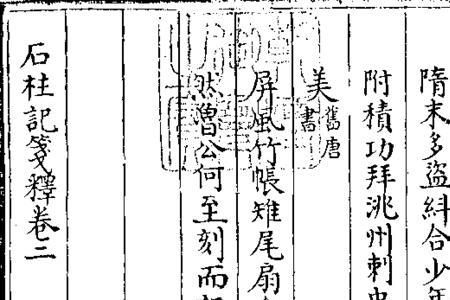 隋末多盜糾合少年
附積功拜洮州刺史
美舊唐書
屏風竹帳雉尾扇
然魯公何至刻而
石柱記箋釋卷二